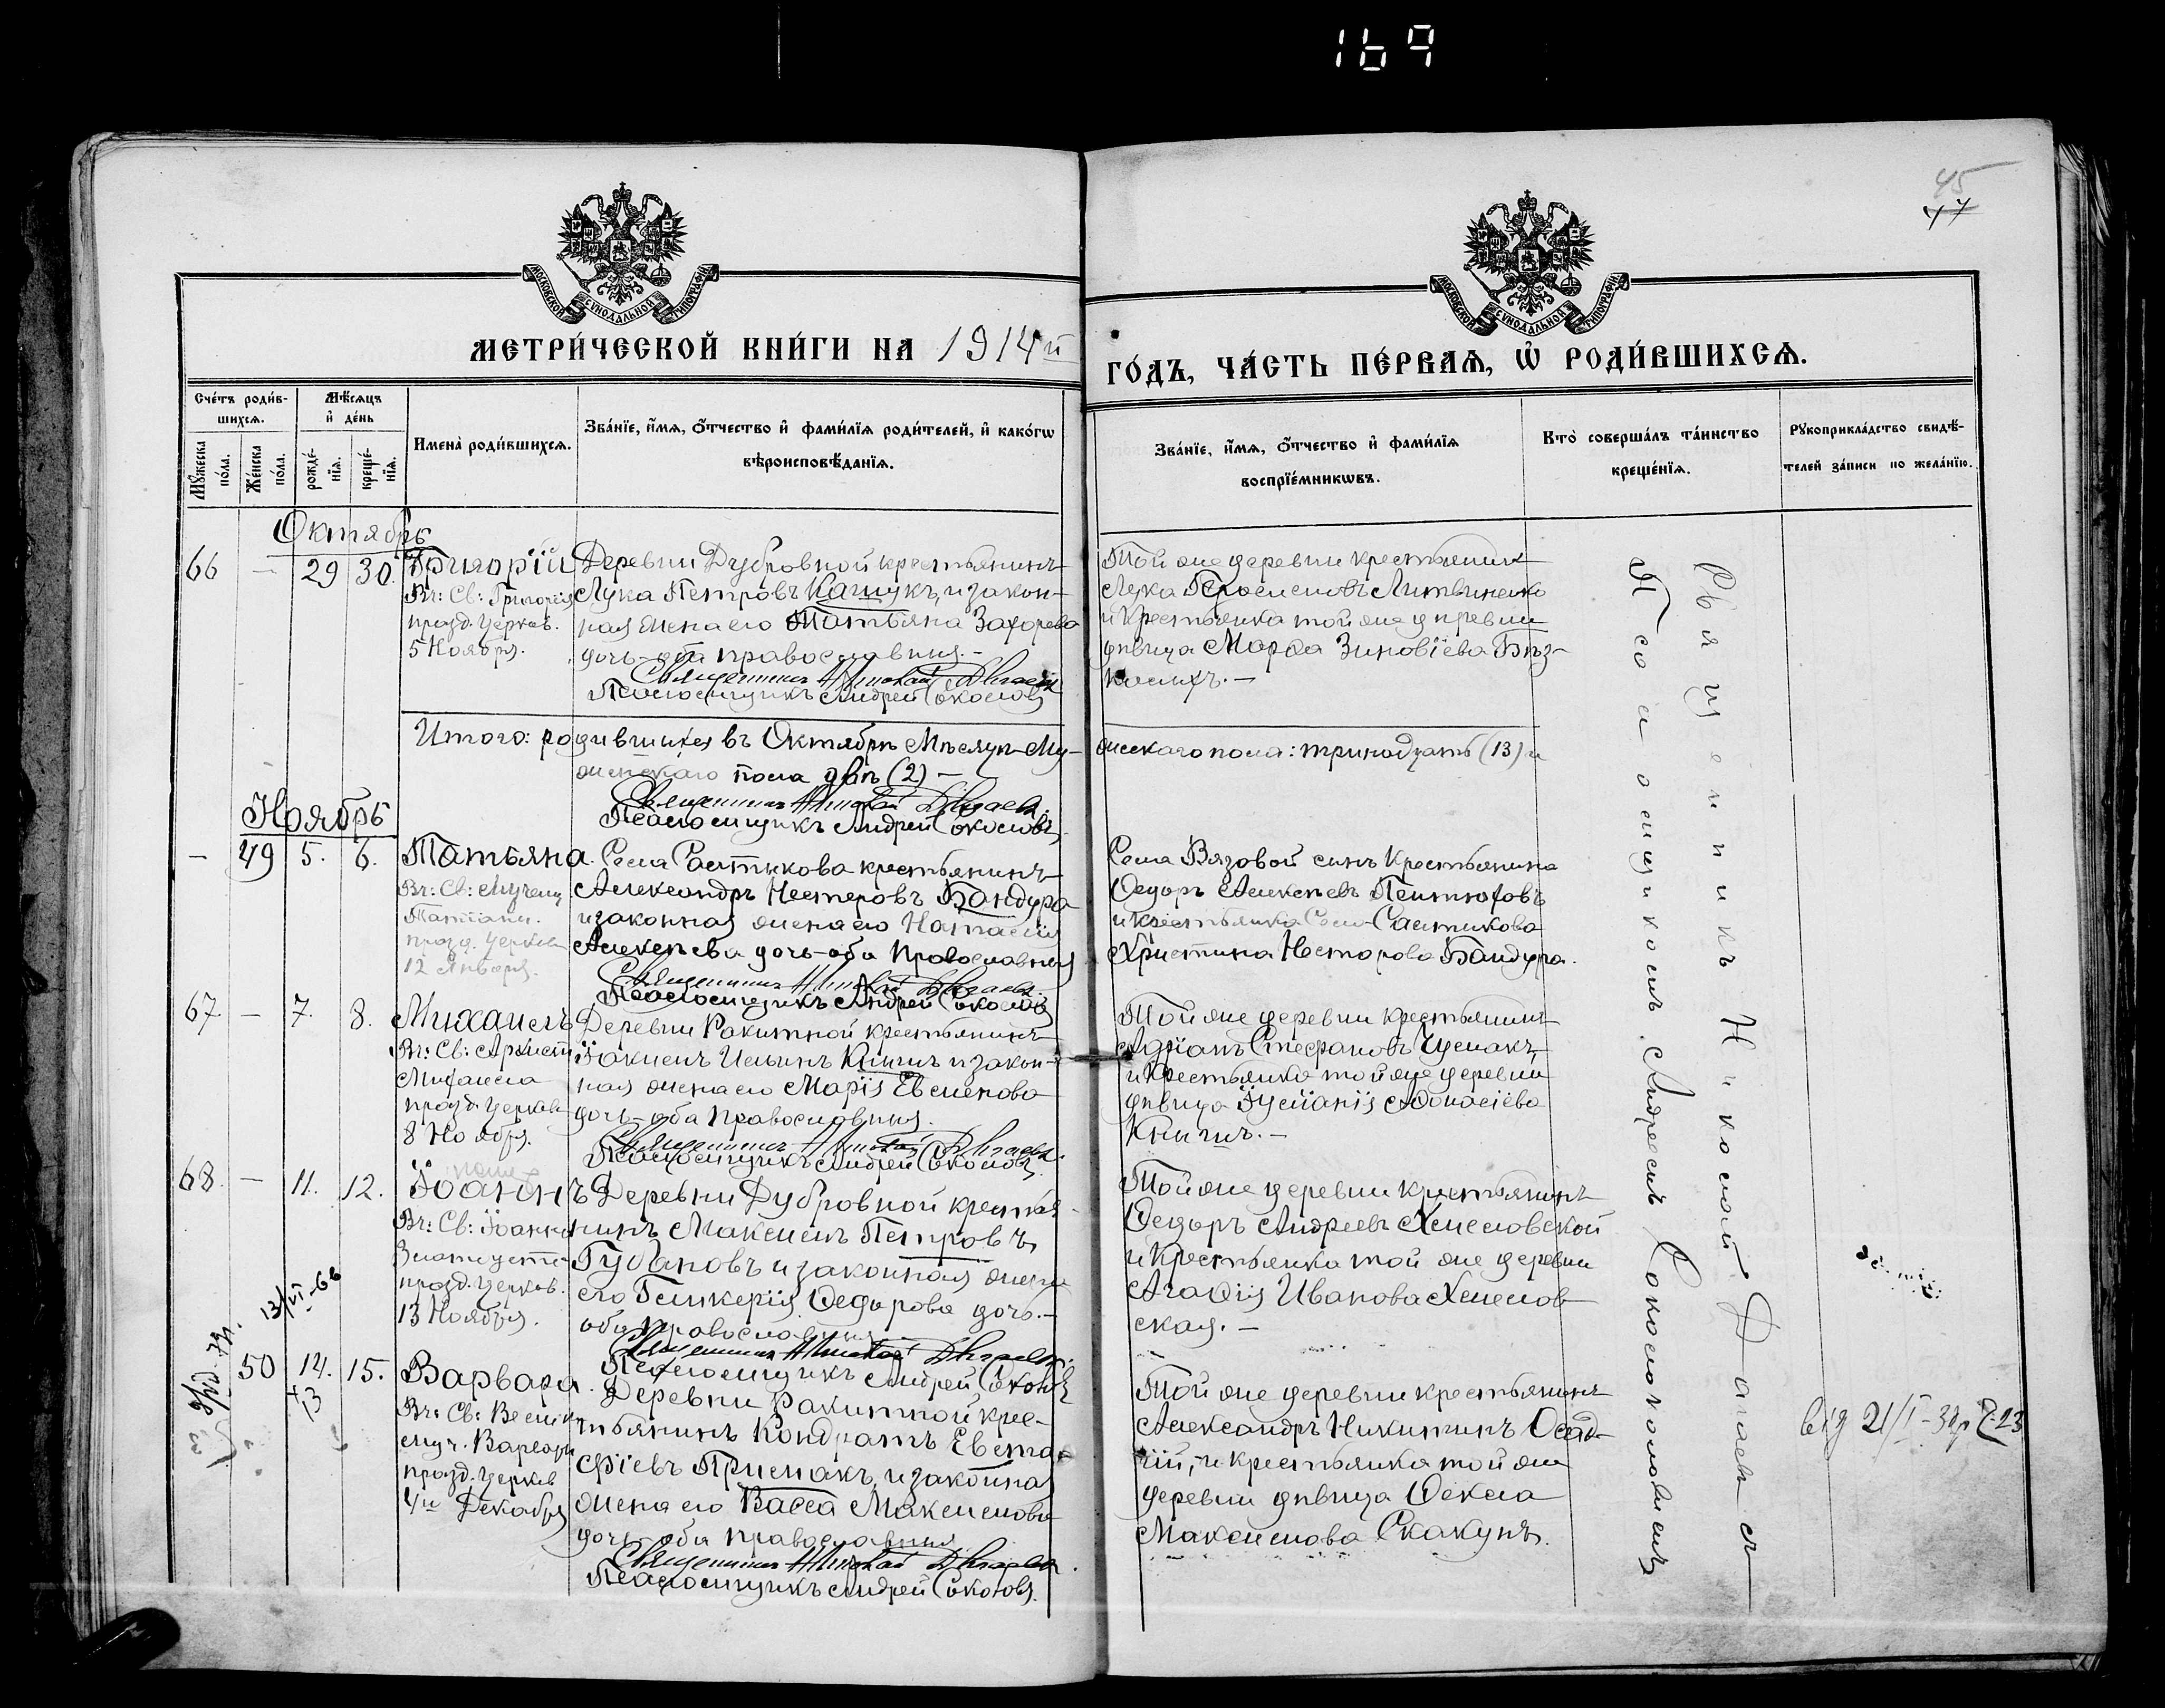 169
45
47
МОСКОВСКОЙ СѴНОДАЛЬНОЙ ТИПОГРАФІИ
МОСКОВСКОЙ СѴНОДАЛЬНОЙ ТИПОГРАФІИ
МЕТРИ́ЧЕСКОЙ КНИ́ГИ НА 1914й
ГО́ДЪ, ЧА́СТЬ ПЕ́РВАѦ, Ѽ РОДИ́ВШИХСѦ.
Сче́тъ роди́в-
шихсѧ.
Мꙋ́жеска по́ла.
Же́нска по́ла.
Мѣ́сѧцъ
и҆ де́нь
рожде́-
нїѧ.
креще́-
нїѧ.
И҆мена̀ роди́вшихсѧ.
Зва́нїе, и҆́мѧ, ѻ҆́тчество и҆ фами́лїѧ роди́телей, и҆ како́гѡ
вѣроисповѣ́данїѧ.
Зва́нїе, и҆́мѧ, ѻ҆́тчество и҆ фами́лїѧ
воспрїе́мникѡвъ.
Кто̀ соверша́лъ та́инство
креще́нїѧ.
Рꙋкоприкла́дство свидѣ́-
телей за́писи по жела́нїю.
Октябрь
66 — 29 30. Григорій
Въ: Св: Григорія
празд. Церков.
5 Ноября.
Деревни Дубровной крестьянинъ
Лука Петровъ Кашукъ, и закон-
ная жена его Татьяна Захорова
дочь-оба православныя.-
Священникъ Николай Двигаевъ
Псаломщикъ Андрей Соколовъ
Той же деревни крестьянинъ
Лука Герасимовъ Литвиненко
и крестьянка той же деревни
дѣвица Марѳа Зиновіева Безк-
Итого: родившихся въ Октябрѣ Мѣсяцѣ Му-
жескаго пола: тринадцать (13) и
женскаго пола двѣ (2) —
Священникъ Николай Двигаевъ.
Псаломщикъ Андрей Соколовъ
Ноябрь
— 49 5. 6. Татьяна.
Въ: Св: Мучениц
Татіаны.
празд. Церков
12 Января.
Села Састыкова крестьянинъ
Александръ Нестеровъ Бандура
и законная жена его Наталія
Алексѣева дочь-оба Православныя
Священникъ Николай Двигаевъ.
Псаломщикъ Андрей Соколовъ
Села Вязовой сынъ Крестьянина
Ѳедоръ Алексѣевъ Пѣитюховъ
и крестьянка Села Састыкова
Христина Несторова Бандура.
67. — 7. 8. Михаилъ
Въ: Св: Архист
Михаила
празд. Церков
8 Ноября.
Деревни Ракитной крестьянинъ
Іоакимъ Ильинъ Книшъ и закон-
ная жена его Марія Евсѣнова
дочь-оба православныя.
Священникъ Николай Двигаевъ.
Псаломщикъ Андрей Соколовъ
Той же деревни крестьянинъ
Адріанъ Стефановъ Чумакъ,
и Крестьянка той же деревни
дѣвица Іуліанія Аѳонасіева
Книшъ.—
68. — 11. 12. Іоаннъ
Въ: Св: Іоанна
Златоуста-
празд. Церков.
13 Ноября.
Деревни Дубровной крестья-
нинъ Максимъ Петровъ
Губановъ и законная жена
его Гликерія Ѳедорова дочь.—
оба православныя
Священникъ Николай Двигаевъ.
Псаломщикъ Андрей Соколовъ
Той же деревни крестьянинъ
Ѳедоръ Андреевъ Хмелевской
и Крестьянка той же деревни
Агафія Иванова Хмелев-
ская.—
13/VI-66
50 14. 15. Варвара.
+
13
Въ: Св: Велик
муч. Варвары
празд. Церков
4го Декабря
Деревни Ракитной крес-
тьянинъ Кондратъ Евста-
фіевъ Примакъ, и законна
жена его Васса Максимова
дочь-оба православныя.
Священникъ Николай Двигаевъ.
Псаломщикъ Андрей Соколовъ.
Той же деревни крестьянинъ
Александръ Никитинъ Осад-
чій, и крестьянка той же
деревни дѣвица Ѳекла
Максимова Скакунъ.
Священникъ Николай Двигаевъ съ
Псаломщикомъ Андреемъ Соколовымъ